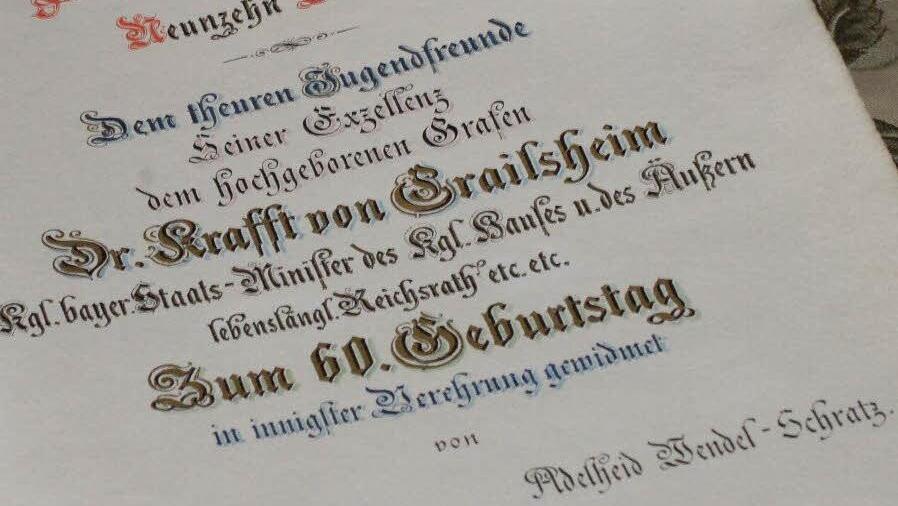 Neunzehn
Dem theuren Jugendfreunde
Seiner Exzellenz
dem hochgeborenen Grafen
Dr. Krafft von Crailsheim
Kgl. bayer. Staats-Minister des Kgl. Hauses u. des Äußern
lebenslängl. Reichsrath etc. etc.
Zum 60. Geburtstag
in innigster Verehrung gewidmet
von
Adelheid Wendel-Schratz.